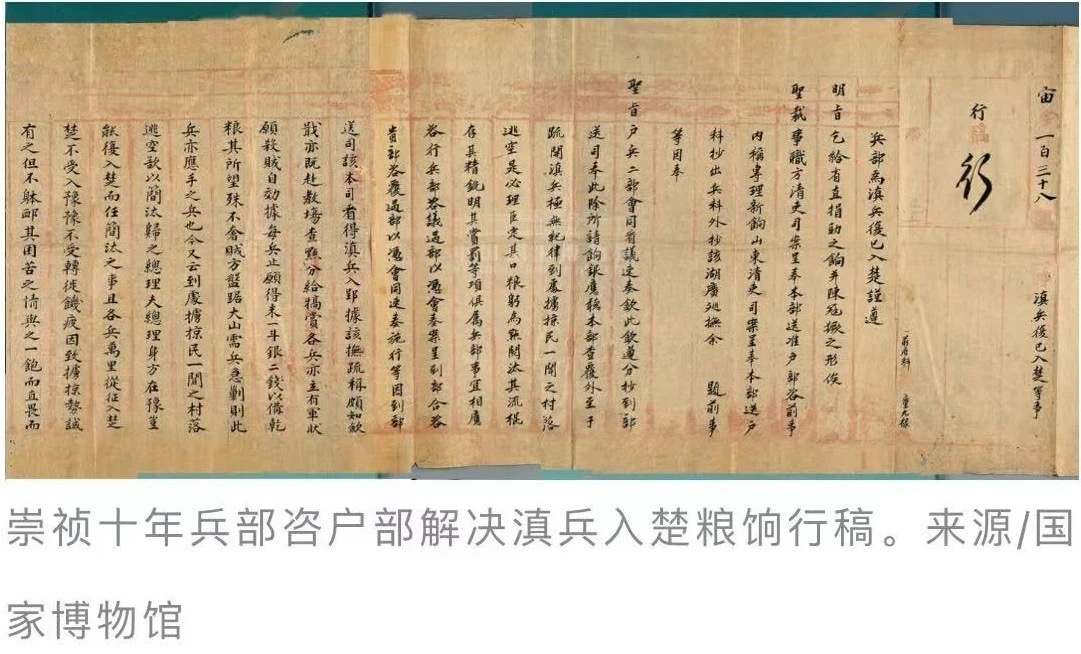 宙一百三十八 滇兵復已入楚等事
行
行
兵部為滇兵復已入楚謹遵
明旨乞給省直捐助之餉并陳冦撒之形俟
聖裁事職方清吏司案呈奉本部送准户部咨前事
内稱專理新餉山東清吏司案呈奉本部送户
科抄出兵科外抄該湖廣廵撫余 題前事
等因奉
聖旨户兵二部會同看議速奏欽此欽遵分抄到部
送司奉此除所請餉銀應聽本部查覆外至于
疏開滇兵極無紀律到處擄掠民一聞之村落
逃空是必理臣定其口粮躬為點閱汰其流棍
存其精銳明其賞罰等項俱属兵部事宜相應
咨行兵部咨議過部以憑會奏案呈到部合咨
貴部咨覆過部以憑會同速奏施行等因到部
送司該本司看得滇兵入郢據該撫疏稱頗知歛
戢亦既赴教塲查點分給犒賞各兵亦立有軍狀
願殺賊自効據每兵止願得米一斗銀二錢以偹乾
粮其所望殊不奢賊方盤踞大山需兵急剿則此
兵亦應手之兵也今又云到處擄掠民一聞之村落
逃空欲以簡汰歸之總理夫總理身方在豫豈
能復入楚而任簡汰之事且各兵萬里從征入楚
楚不受入豫豫不受轉徙饑疲因致擄掠勢誠
有之但不躰䘏其困苦之情與之一飽而直畏而
崇祯十年兵部咨户部解决滇兵入楚粮饷行稿。来源/国
家博物馆